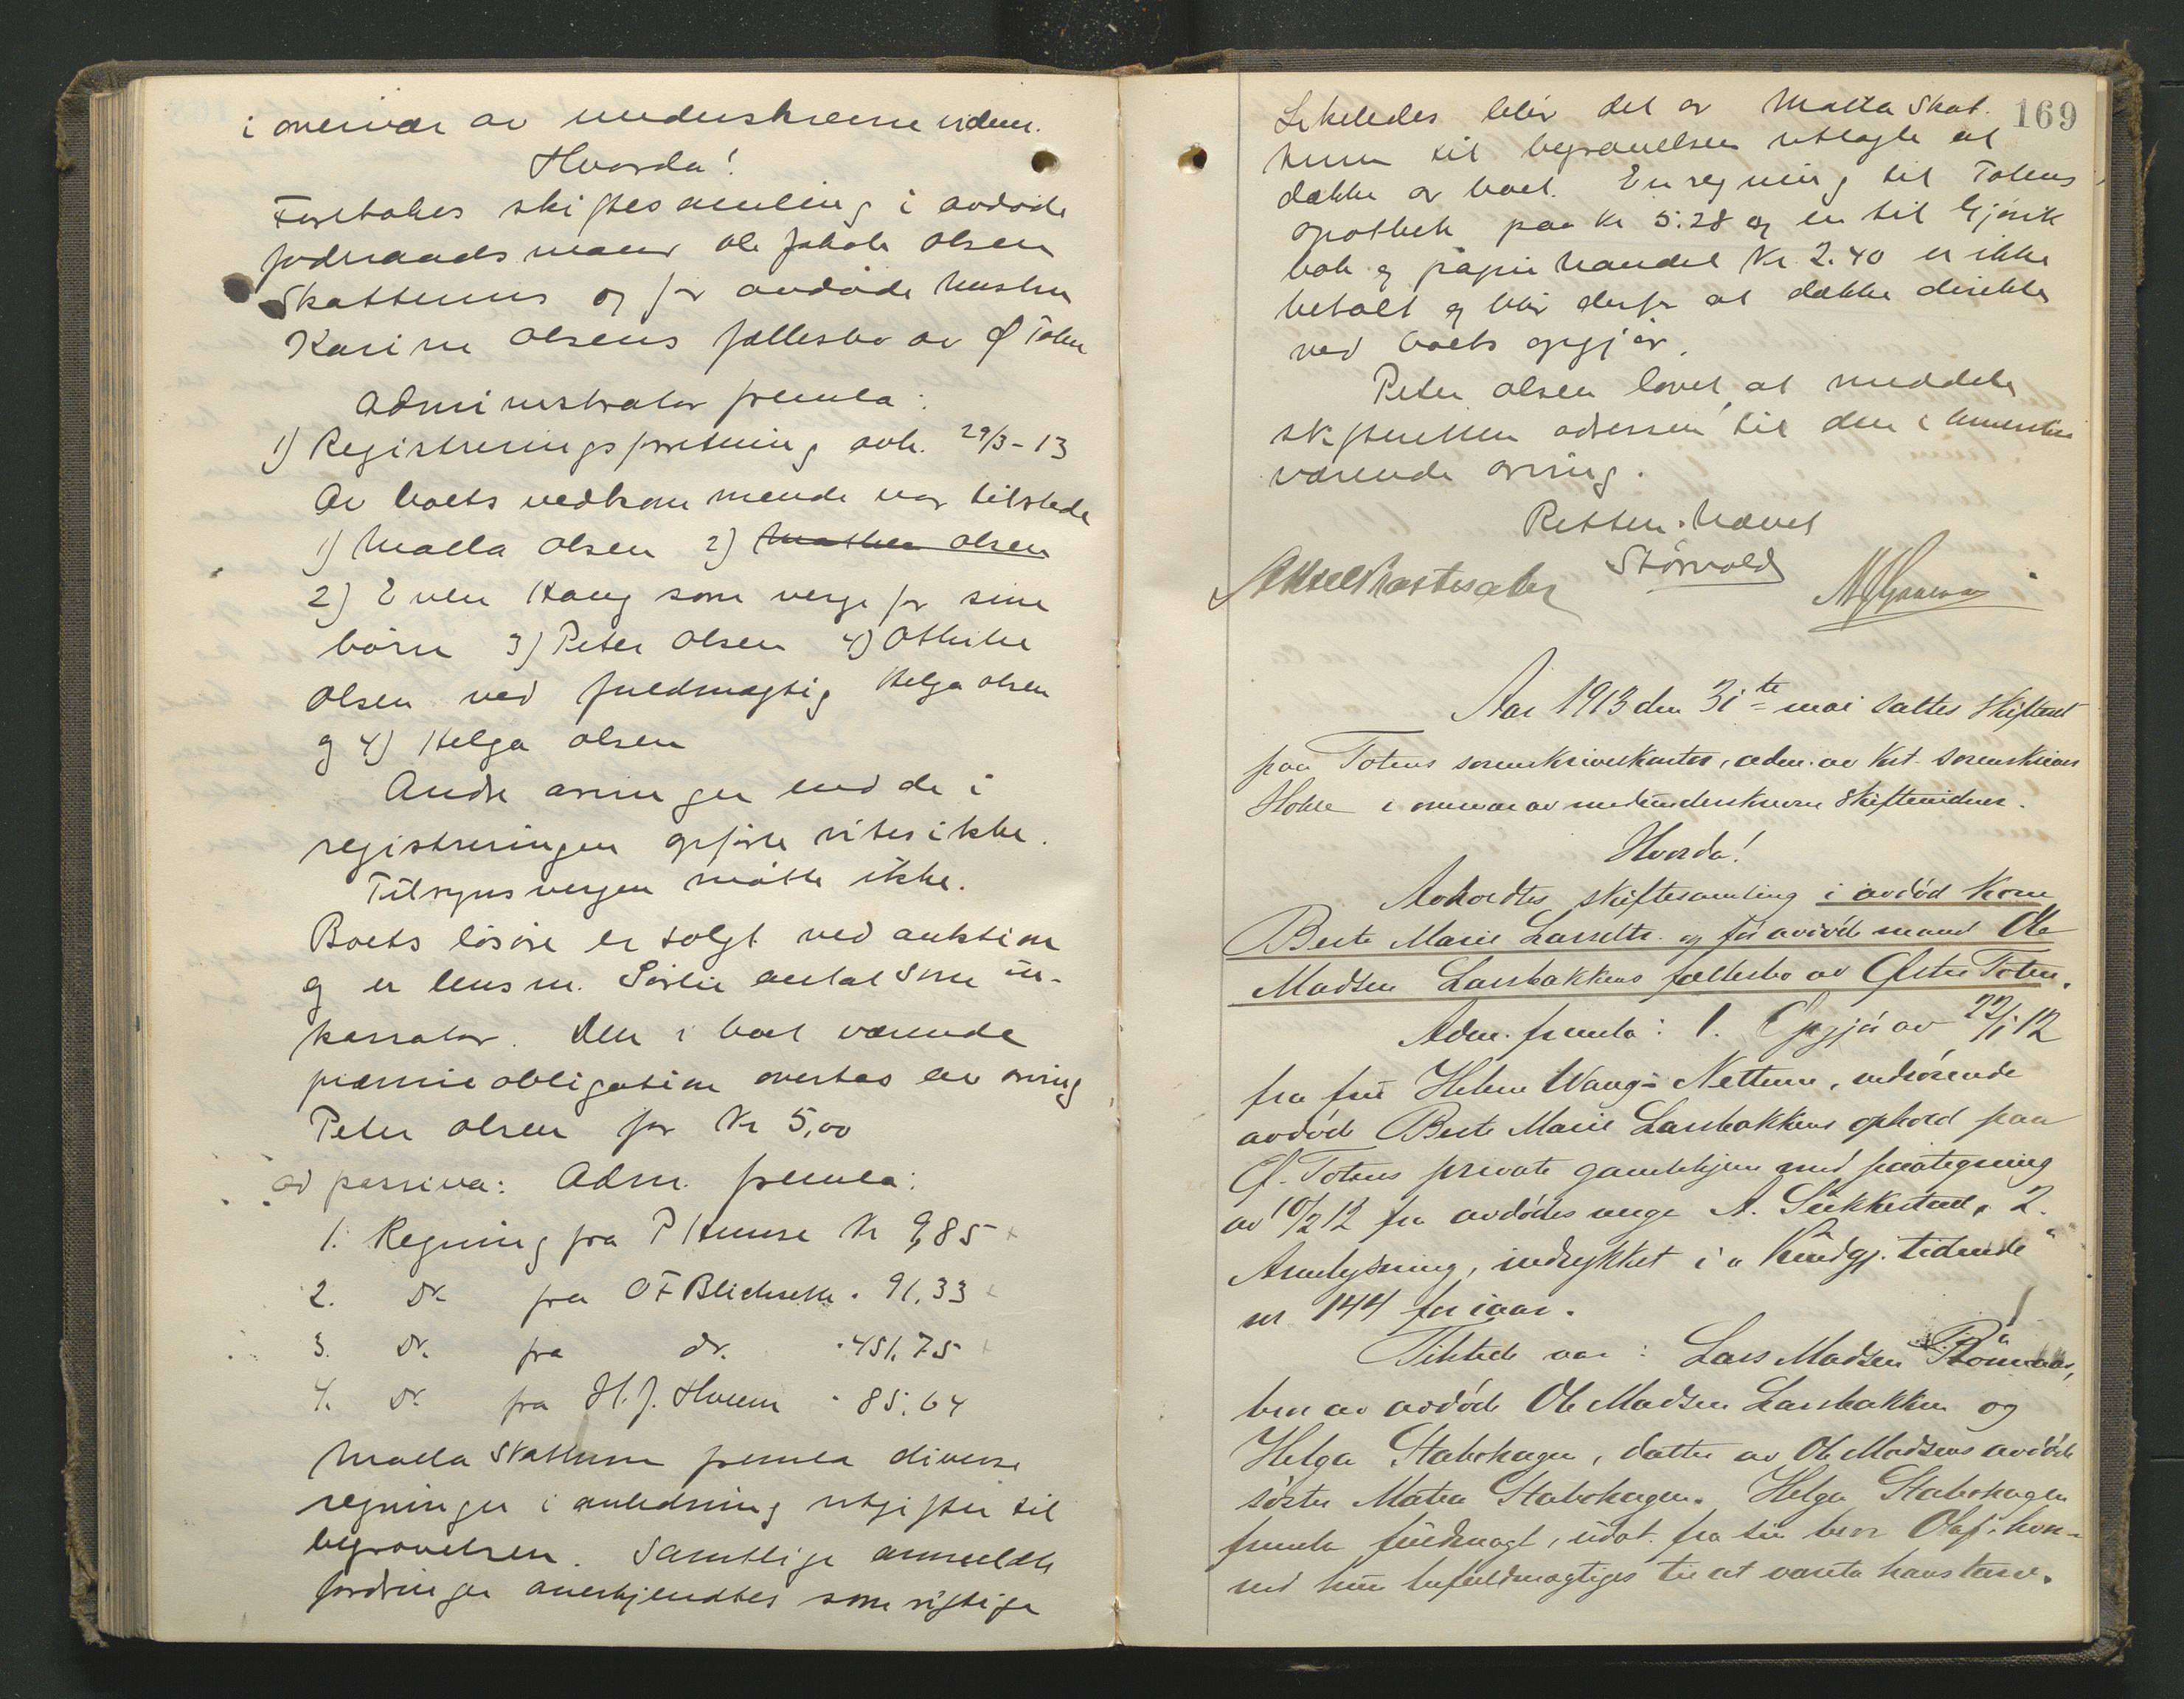 i overvær av underskrevne vidner.
Hvorda!
Foretokes skiftesamling i avdøde
fodraadsmand Ole Jakob Olsen
Skattum og før avdøde hustru
Karine Olsens fællesbo av Ø Toten
Administrator fremla:
1) Registreringsforretning avh. 29/3-13
Av boets vedkommende var tilstede
1) Malla Olsen 2) Mathea Olsen
2) Even Haug som verge for sine
børn 3) Peter Olsen 4) Othilie
Olsen ved fuldmægtig Helga Olsen
og 4) Helga Olsen
Andre arvinger end de i
registreringen opførte vites ikke.
Tilsynsvergen møtte ikke.
Boets løsøre er solgt ved auktion
og er lensm. Sørlie antat som in-
kassator. Den i boet værende
præmieobligation overtas av arving
Peter Olsen for Kr 5,00
ad passiva: Adm. fremla:
1. Regning fra P Hunse Kr 9,85
2. Do. fra OF Blichseth . 91.33
3. Do. fra do. . 451.75
4. Do. fra H.J. Hveem . 85.64
Malla Skattum fremla diverse
regninger i anledning utgifter til
begravelsen. Samtlige anmeldte
fordringer anerkjendtes som rigtige
169
Likeledes blir det av Malla Skat-
tum til begravelsen utlagte at
dække av boet. En regning til Totens
apothek paa Kr 5.28 og en til Gjøvik
bok og papirhandel Kr. 2.40 er ikke
betalt og blir derfor at dække direkte
ved boets opgjør.
Peter Olsen lovet at meddele
skifteretten adressen til den i Amerika
værende arving.
Retten hævet
Størvold
Aar 1913 den 31te mai sattes skifteret
paa Totens sorenskriverkontor, adm. av kst. sorenskriver
Holde i overvær av medunderskrevne skiftevidner.
Hvorda!
Avholdtes skiftesamling i avdød kone
Berte Marie Larsdtr. og før avdøde mand Ole
Madsen Larsbakkens fællesbo av Østre Toten.
Adm. fremla: 1. Opgjør av 22/1 12
fra frü Helene Wang-Nettum, vedrørende
avdøde Berte Marie Larsbakkens ophold paa
Ø. Totens private gamlehjem med paategning
av 10/2 12 fra avdødes verge A. Sükkestad. 2.
Avertysning, indrykket i "Kündgj. tidende"
nr 144 for iaar.
Tilstede var: Lars Madsen
bror av avdøde Ole Madsen Larsbakken og
Helga Stabohagen, datter av Ole Madsens avdøde
søster Matea Stabohagen. Helga Stabohagen
fremla fuldmagt, üdst. fra sin bror Olaf, hvor-
ved hün befuldmægtiges til at vareta hans tarv.